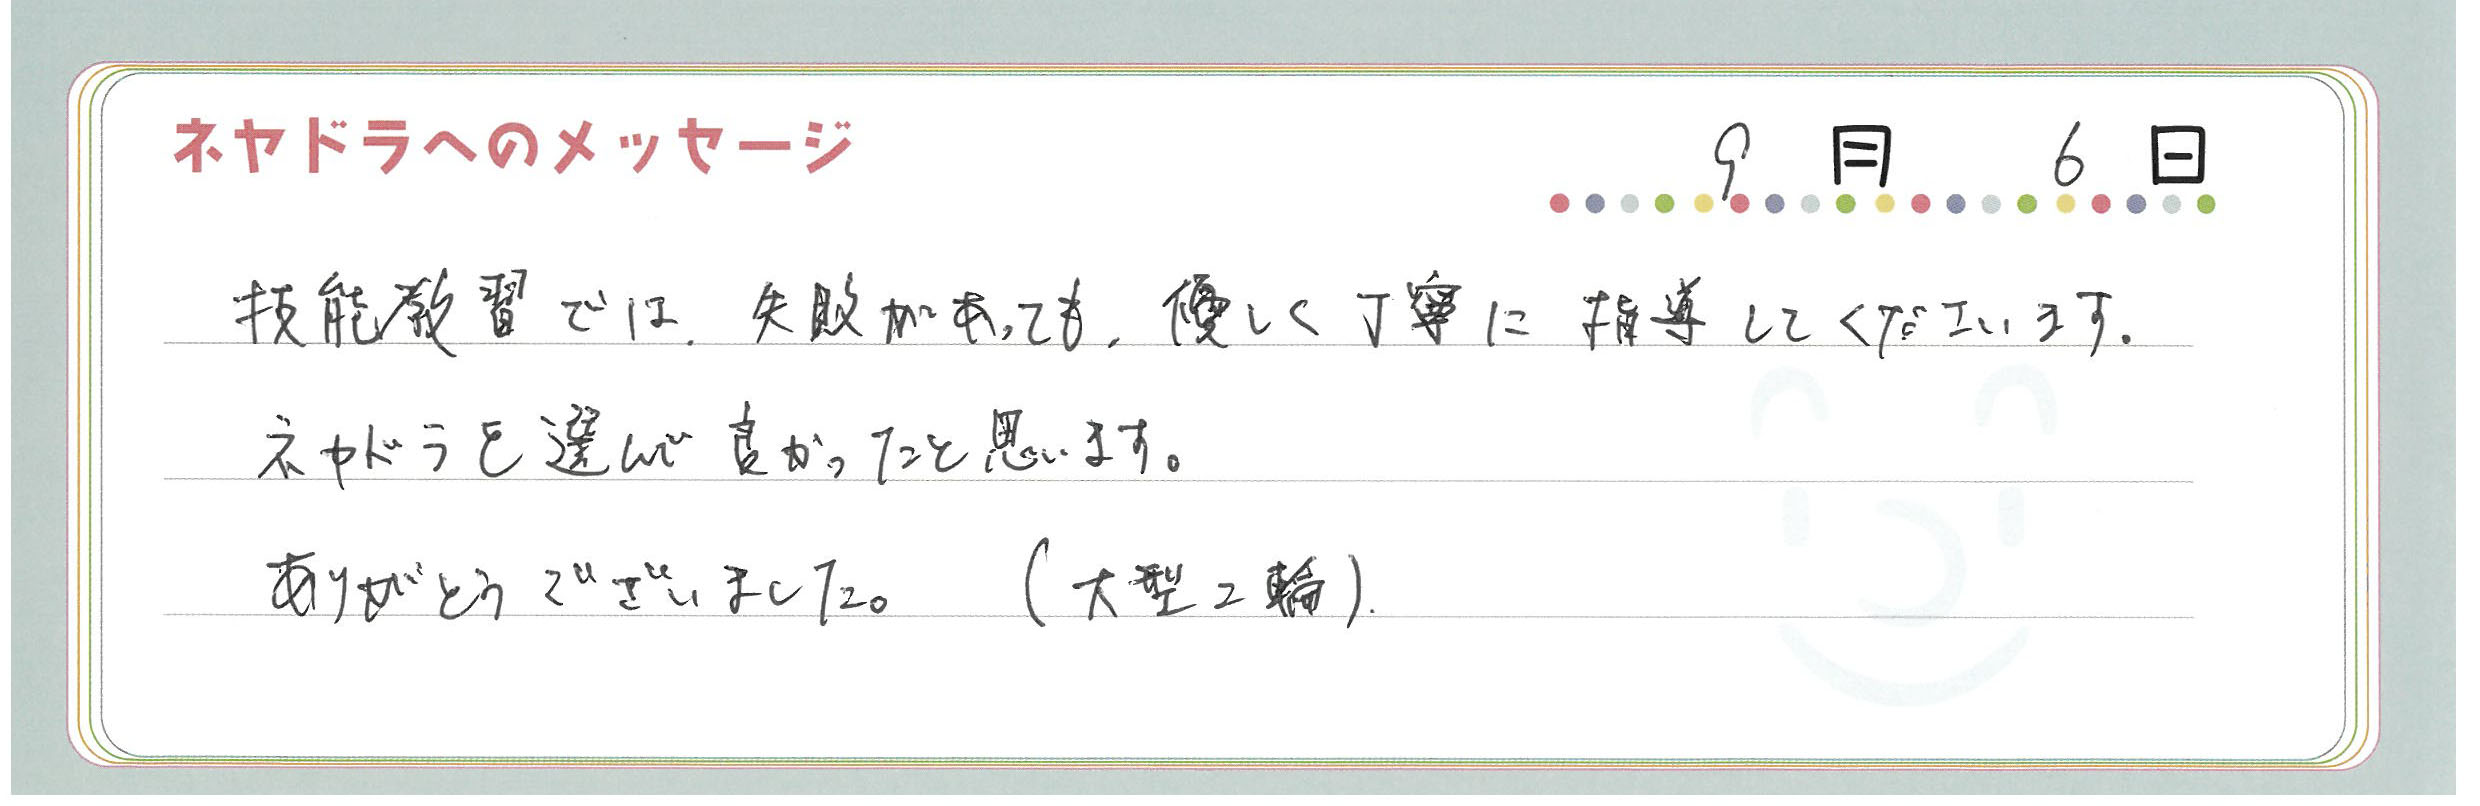 ネヤドラへのメッセージ
9月 6日
技能教習では、失敗があっても、優しく丁寧に指導してくださいます。
ネヤドラを選んで良かったと思います。
ありがとうございました。 (大型二輪).